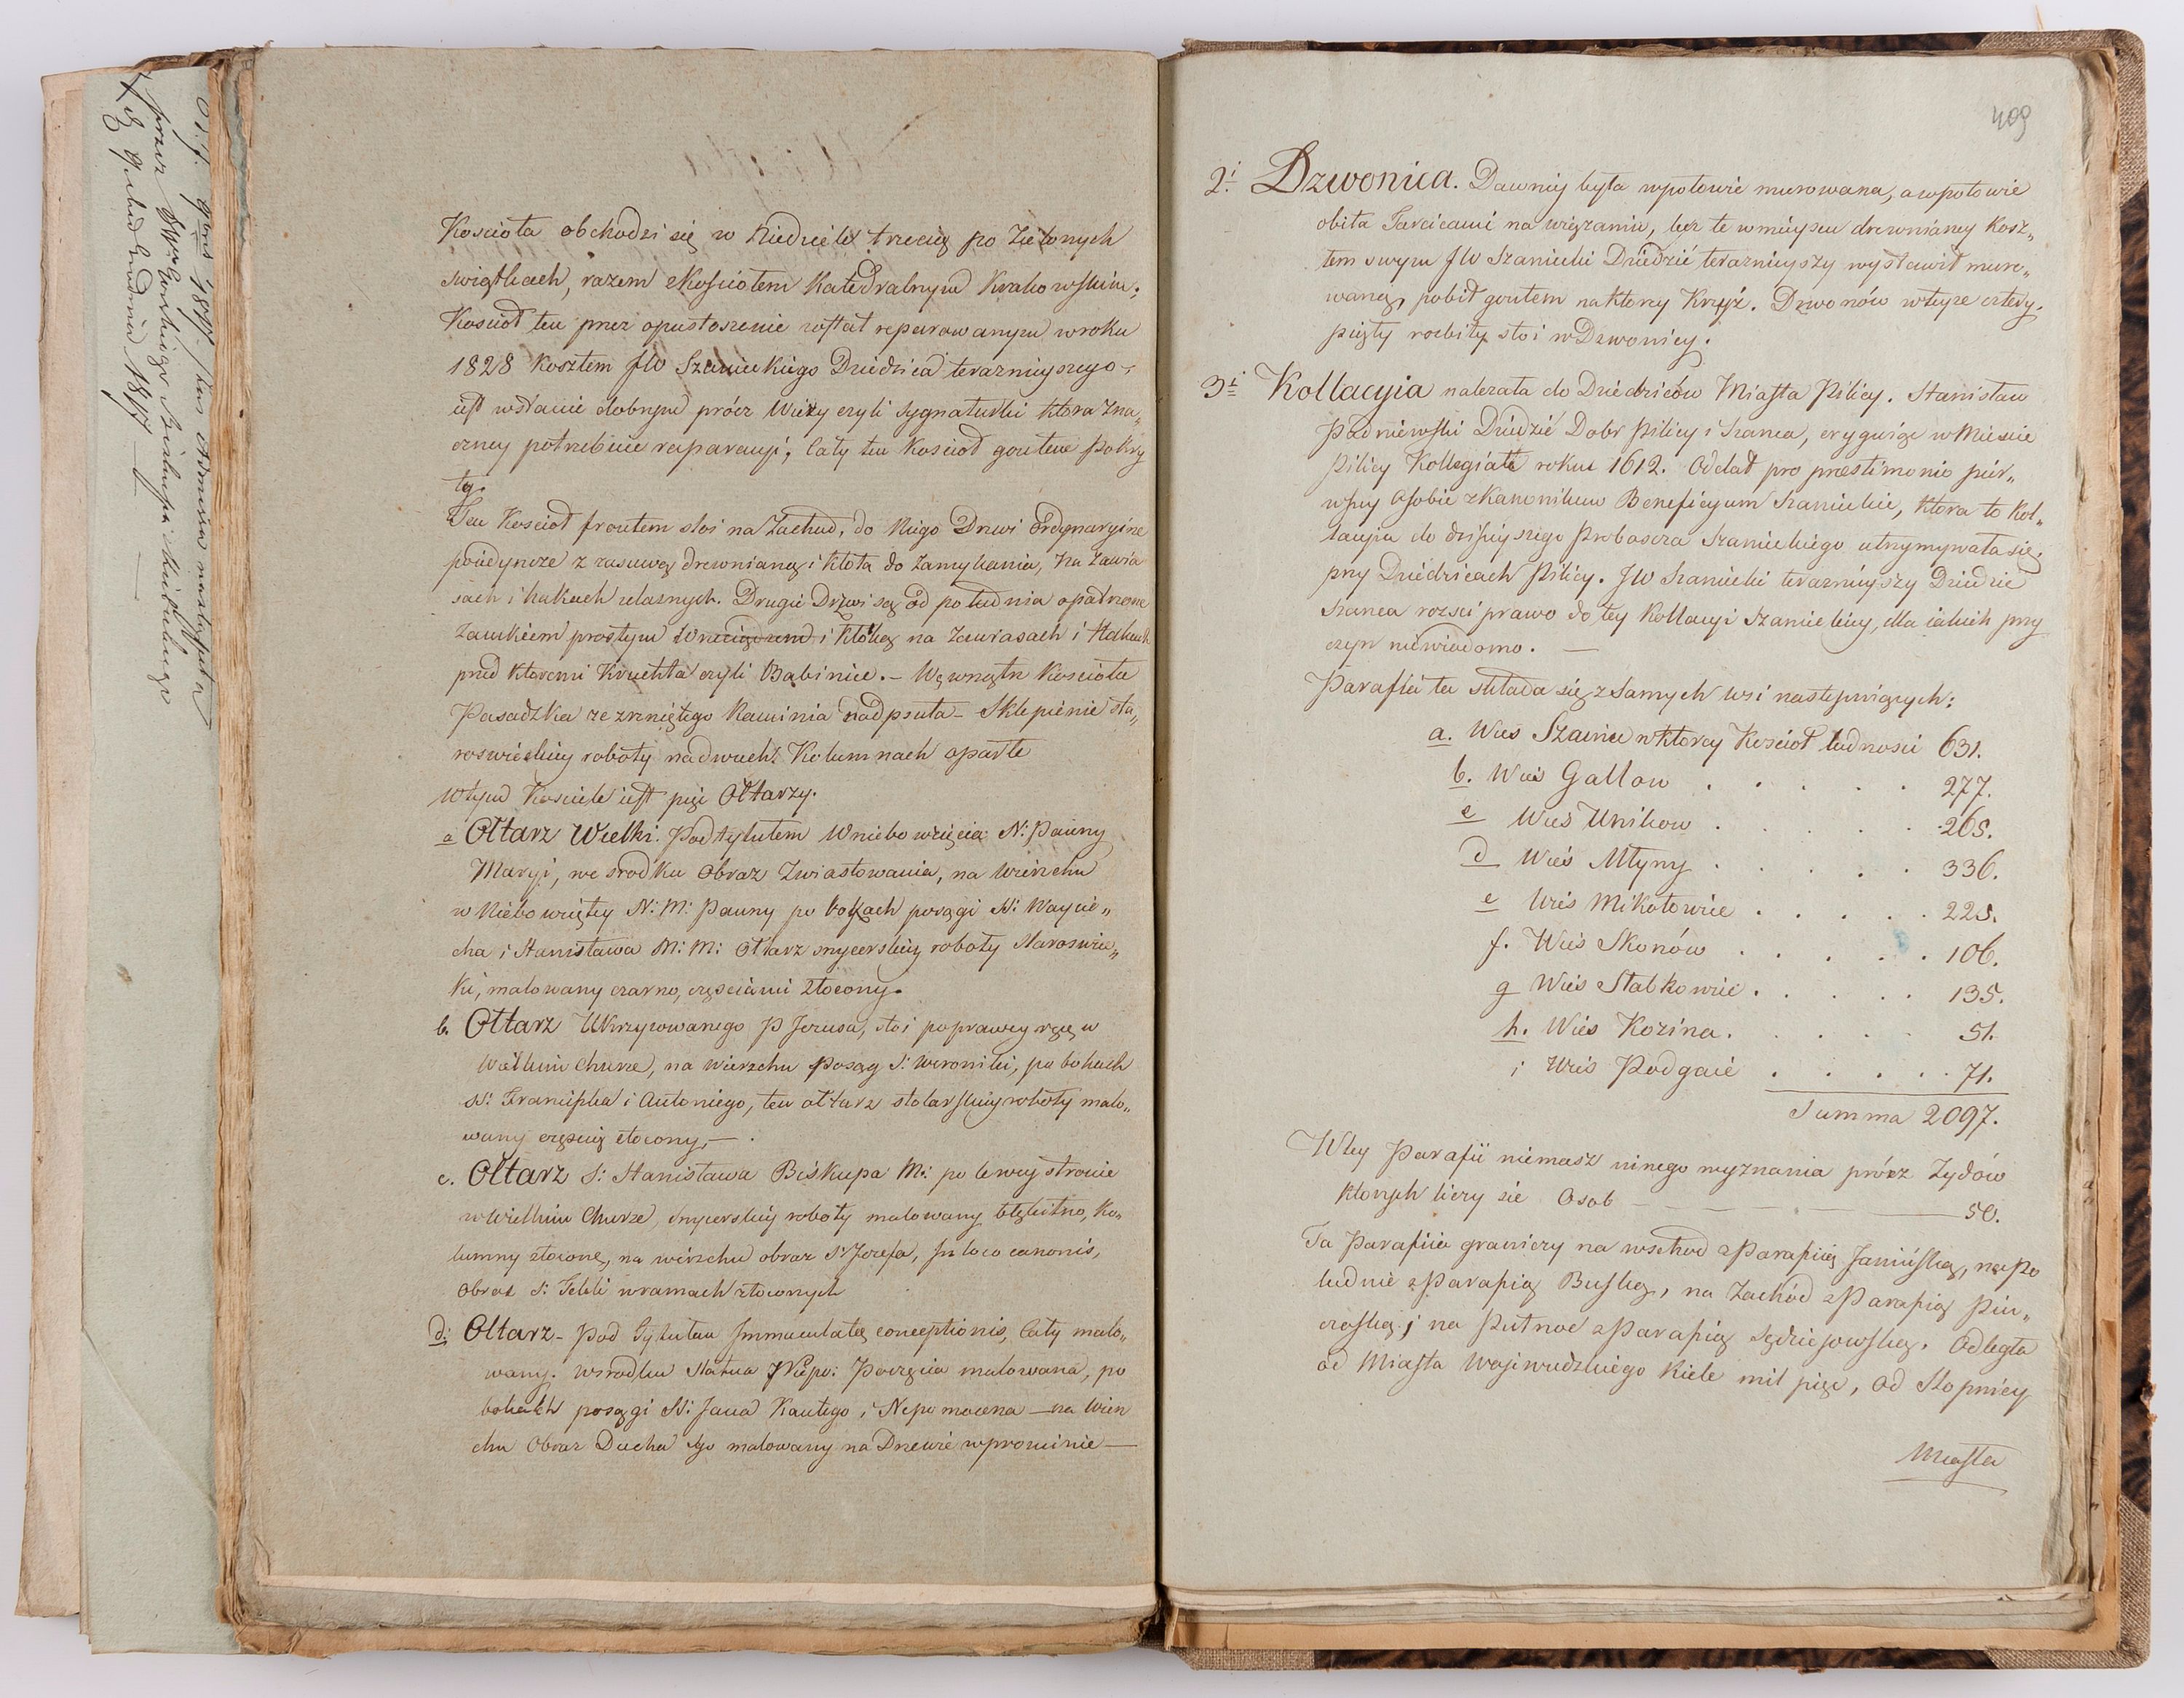 Kościoła obchodzi się w Niedzielę trzecią po Zielonych
swiątkach, razem z Kościołem Katedralnym Krakowskim.
Kościoł ten przez opustoszenie został reparowanym w roku
1828 Kosztem JW Szanieckiego Dziedzica teraznieyszego,
iest w stanie dobrym prócz Wieży czyli Sygnaturki ktora zna„
czney potrzebuie reparacyi, Cały ten Kościoł gontem Pokry
ty.
Ten Kościoł frontem stoi na Zachod, do Niego Drzwi Ordynaryine
poiedyncze z zasuwą drewnianą i Kłotą do Zamykania, Na Zawia
sach i hakach zelaznych. Drugie Drzwi są od południa opatrzone
Zamkiem prostym i Klótką na Zawiasach i Hakach
przed ktoremi Kruchta czyli Babiniec. – Wewnątrz Kościoła
Posadzka ze zrzniętego Kamienia nadpsuta – Sklepienie sta„
roswieckiey roboty na dwuch Kolumnach oparte
W tym Kościele iest pięć Ołtarzy.
a Ołtarz Wielki. Pod tytułem Wniebowzięcia N: Panny
Maryi, we srodku Obraz Zwiastowania, na Wierzchu
w Niebowziętey N: M: Panny po bokach posągi SS: Woycie„
cha i Stanisława M: M: Ołtarz snycerskiey roboty Staroswie„
Ki, malowany czarno, częściami złocony.
b. Ołtarz Ukrzyzowanego P Jezusa, stoi po prawey ręcę w
Wielkim Churze, na wierzchu posąg S: Weroniki, po bokach
SS: Franciszka i Antoniego, ten ołtarz stolarskiey roboty malo„
wany częscią złocony, – .
c. Ołtarz S: Stanisława Biskupa M: po lewey stronie
w Wielkim Churze, Snycerskiey roboty malowany błękitno, Ko„
lumny złocone, na wierzchu obraz S: Jozefa, In loco canonis,
Obraz S: Tekli w ramach złoconych
d: Ołtarz – Pod Tytułem Immaculatę conceptionis, Cały malo„
wany. W srodku Statua Niepo: Poczęcia malowana, po
bokach posągi SS: Jana Kantego i Nepomocena – na Wierz
chu Obraz Ducha Sgo malowany na Drzewie w promienie —
409
2i Dzwonica. Dawniey była w połowie murowana, a w połowie
obita Tarcicami na wiązaniu, lecz te w mieyscu drewnianey Kosz„
tem swym JW Szaniecki Dziedzic teraznieyszy wystawił muro„
waną, pobił gontem na ktorey Krzyż. Dzwonów w teyze cztery,
piąty rozbity stoi w Dzwonicy.
3i Kollacyia nalezała do Dziedziców Miasta Pilicy. Stanisław
Padniewski Dziedzic Dobr Pilicy i Szanca, erygując w Miescie
Pilicy Kollegiatę roku 1612. Oddał pro præstimonio pier„
wszey Osobie z Kanonikow Beneficyum Szanieckie, Ktora to Kol„
lacyia do dzisieyszego Proboscza Szanieckiego utrzymywała się
przy Dziedzicach Pilicy. JW Szaniecki teraznieyszy Dziedzic
Szanca rości prawo do tey Kollacyi Szanieckiey, dla iakich przy
czyn niewiadomo. —
Parafia ta składa się z Samych wsi następuiących:
a. Wies Szaniec w ktorey Kościoł ludnosci 631.
b. Wieś Gallow . . . . . 277.
c Wieś Unikow . . . . . 265.
d Wieś Młyny . . . . . 336.
e Wieś Mikołowice . . . . . 225.
f. Wieś Skonów . . . . . 106.
g Wieś Słabkowice . . . . . 135.
h. Wieś Kozina. . . . . 51.
i Wieś Podgaie . . . . . 71.
Summa 2097.
W tey Parafii niemasz innego wyznania prócz Zydów
ktorych liczy sie Osob — — — — — 50.
Ta Parafiia graniczy na wschod z Parafiią Janińską, na Po
łudnie z Parafią Buską, na Zachód z Parafią Piń„
czoską; na Pułnoc z Parafią Sędziejowską. Odległa
od Miasta Wojewudzkiego Kielc mil pięć, Od Stopnicy
Miasta